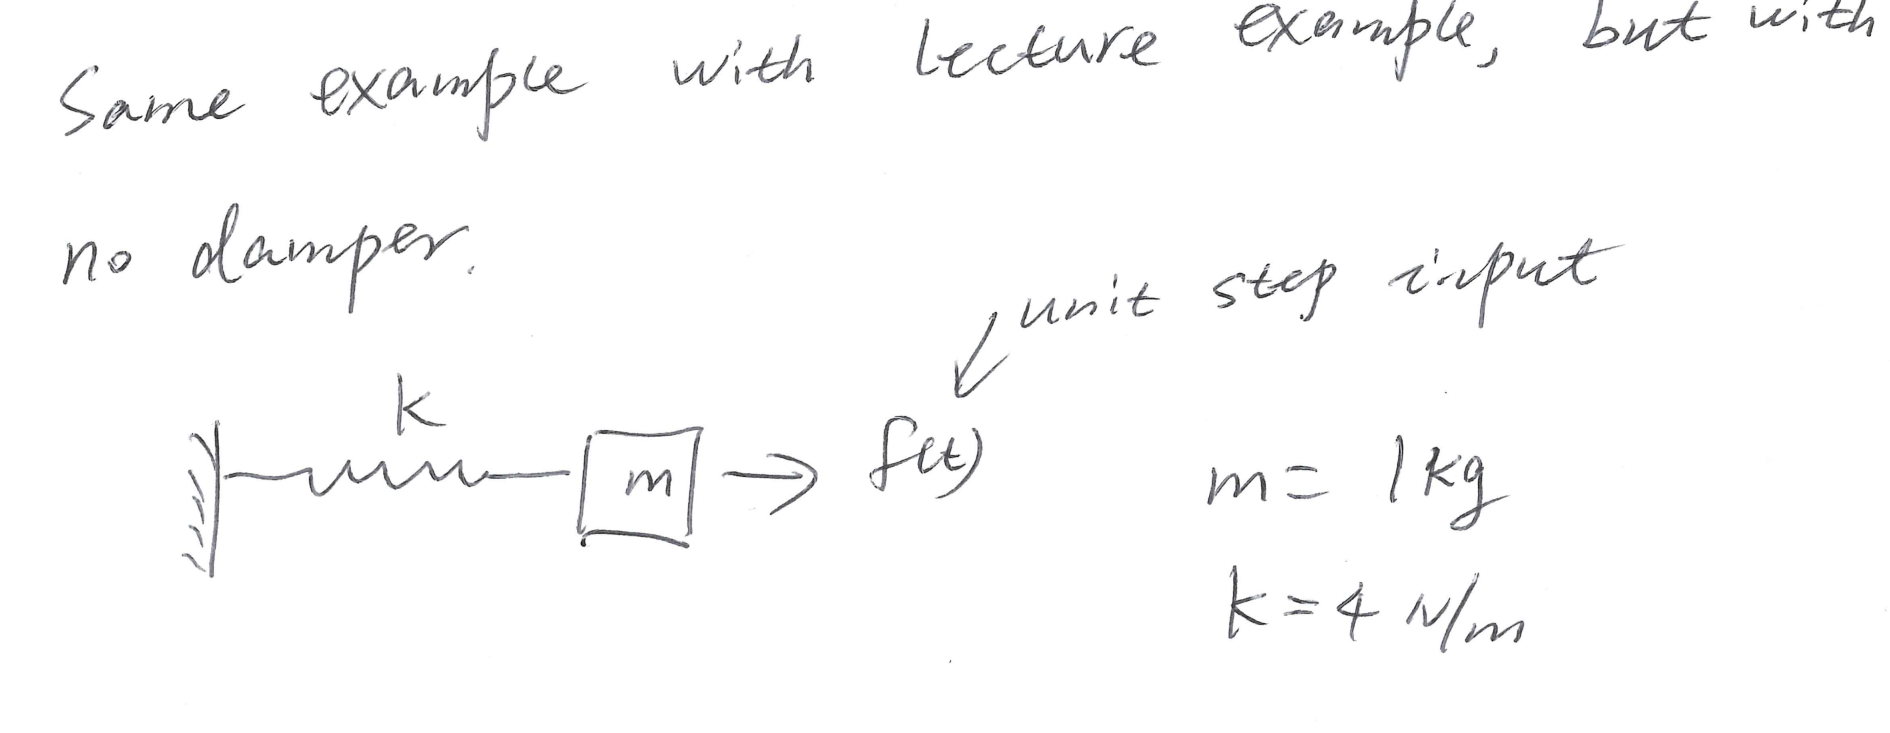 Same example with lecture example, but with
no damper.
unit step input
k
m
f(t)
m = 1 kg
k = 4 N/m